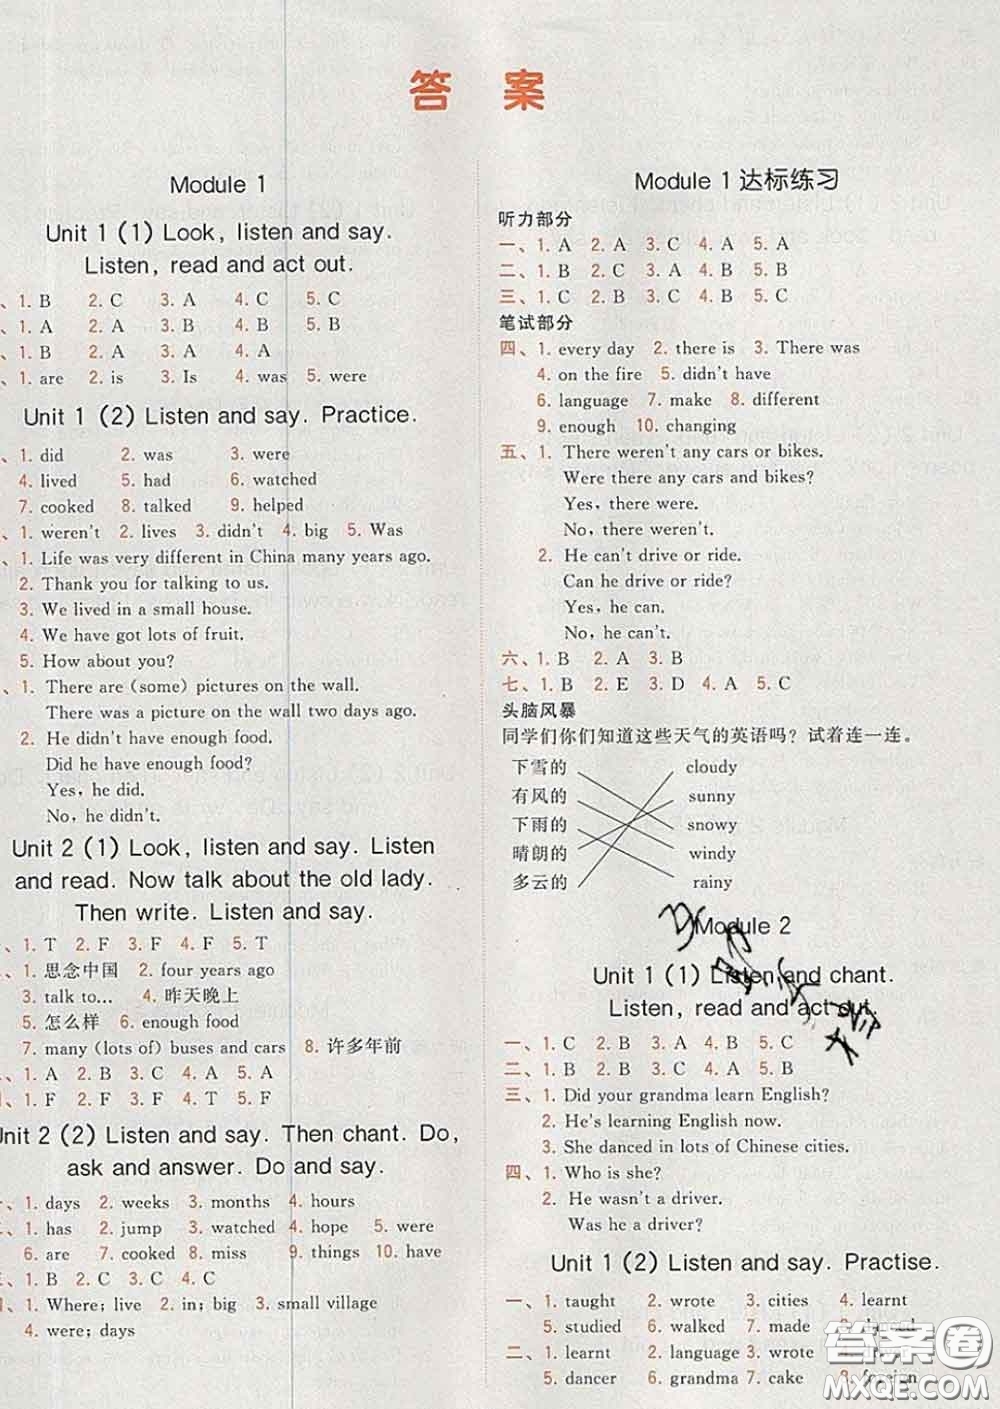 答 案
Module 1
Unit 1 (1) Look, listen and say.
Listen, read and act out.
、1. B 2. C 3. A 4. C 5. C
、1. A 2. A 3. B 4. B 5. B
、1. B 2. A 3. A 4. A
、1. are 2. is 3. Is 4. was 5. were
Unit 1 (2) Listen and say. Practice.
、1. did 2. was 3. were
4. lived 5. had 6. watched
7. cooked 8. talked 9. helped
、1. weren't 2. lives 3. didn't 4. big 5. Was
、1. Life was very different in China many years ago.
2. Thank you for talking to us.
3. We lived in a small house.
4. We have got lots of fruit.
5. How about you?
、1. There are (some) pictures on the wall.
There was a picture on the wall two days ago.
2. He didn't have enough food.
Did he have enough food?
Yes, he did.
No, he didn't.
Unit 2 (1) Look, listen and say. Listen
and read. Now talk about the old lady.
Then write. Listen and say.
、1. T 2. F 3. F 4. F 5. T
、1. 思念中国 2. four years ago
3. talk to... 4. 昨天晚上
5. 怎么样 6. enough food
7. many (lots of) buses and cars 8. 许多年前
、1. A 2. B 3. B 4. A 5. A
、1. F 2. F 3. F 4. T 5. F
Unit 2 (2) Listen and say. Then chant. Do,
ask and answer. Do and say.
一、1. days 2. weeks 3. months 4. hours
二、1. has 2. jump 3. watched 4. hope 5. were
6. are 7. cooked 8. miss 9. things 10. have
三、1. B 2. C 3. C 4. C
四、1. Where; live 2. in; big 3. small village
4. were; days
Module 1 达标练习
听力部分
一、1. A 2. A 3. C 4. A 5. A
二、1. B 2. C 3. A 4. B 5. B
三、1. C 2. B 3. C 4. B 5. C
笔试部分
四、1. every day 2. there is 3. There was
4. on the fire 5. didn't have
6. language 7. make 8. different
9. enough 10. changing
五、1. There weren't any cars or bikes.
Were there any cars and bikes?
Yes, there were.
No, there weren't.
2. He can't drive or ride.
Can he drive or ride?
Yes, he can.
No, he can't.
六、1. B 2. A 3. B
七、1. B 2. E 3. D 4. A 5. C
头脑风暴
同学们你们知道这些天气的英语吗？试着连一连。
下雪的 cloudy
有风的 sunny
下雨的 snowy
晴朗的 windy
多云的 rainy
Module 2
Unit 1 (1) Listen and chant.
Listen, read and act out.
一、1. C 2. B 3. A 4. B 5. A
二、1. B 2. B 3. A 4. A 5. B
三、1. Did your grandma learn English?
2. He's learning English now.
3. She danced in lots of Chinese cities.
四、1. Who is she?
2. He wasn't a driver.
Was he a driver?
Unit 1 (2) Listen and say. Practise.
一、1. taught 2. wrote 3. cities 4. learnt
5. studied 6. walked 7. made 8.
二、1. learnt 2. language 3. wrote 4.
5. dancer 6. grandma 7. cake 8. foreign
答案圈
MXQE.COM